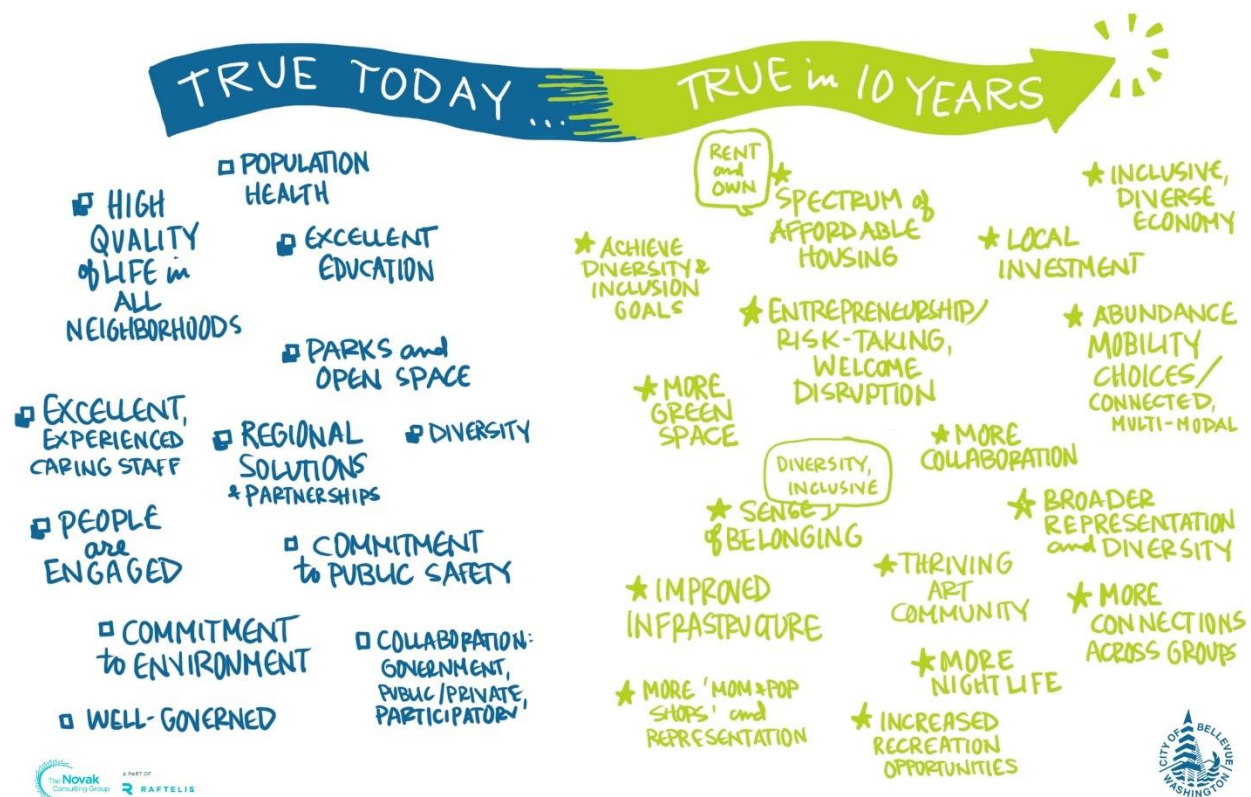 TRUE TODAY...
TRUE in 10 YEARS
POPULATION
HEALTH
HIGH
QUALITY
of LIFE in
ALL
NEIGHBORHOODS
EXCELLENT
EDUCATION
PARKS and
OPEN SPACE
EXCELLENT,
EXPERIENCED
CARING STAFF
REGIONAL
SOLUTIONS
& PARTNERSHIPS
DIVERSITY
PEOPLE
are
ENGAGED
COMMITMENT
to PUBLIC SAFETY
COMMITMENT
to ENVIRONMENT
COLLABORATION:
GOVERNMENT,
PUBLIC/PRIVATE,
PARTICIPATORY,
WELL-GOVERNED
RENT
and
OWN
SPECTRUM of
AFFORDABLE
HOUSING
INCLUSIVE,
DIVERSE
ECONOMY
ACHIEVE
DIVERSITY &
INCLUSION
GOALS
LOCAL
INVESTMENT
ENTREPRENEURSHIP/
RISK-TAKING,
WELCOME
DISRUPTION
ABUNDANCE
MOBILITY
CHOICES/
CONNECTED,
MULTI-MODAL
MORE
GREEN
SPACE
MORE
COLLABORATION
DIVERSITY,
INCLUSIVE
SENSE
of BELONGING
BROADER
REPRESENTATION
and DIVERSITY
IMPROVED
INFRASTRUCTURE
THRIVING
ART
COMMUNITY
MORE
CONNECTIONS
ACROSS GROUPS
MORE
NIGHTLIFE
MORE 'MOM & POP
SHOPS' and
REPRESENTATION
INCREASED
RECREATION
OPPORTUNITIES
The Novak
Consulting Group
A PART OF
RAFTELIS
CITY OF BELLEVUE
WASHINGTON